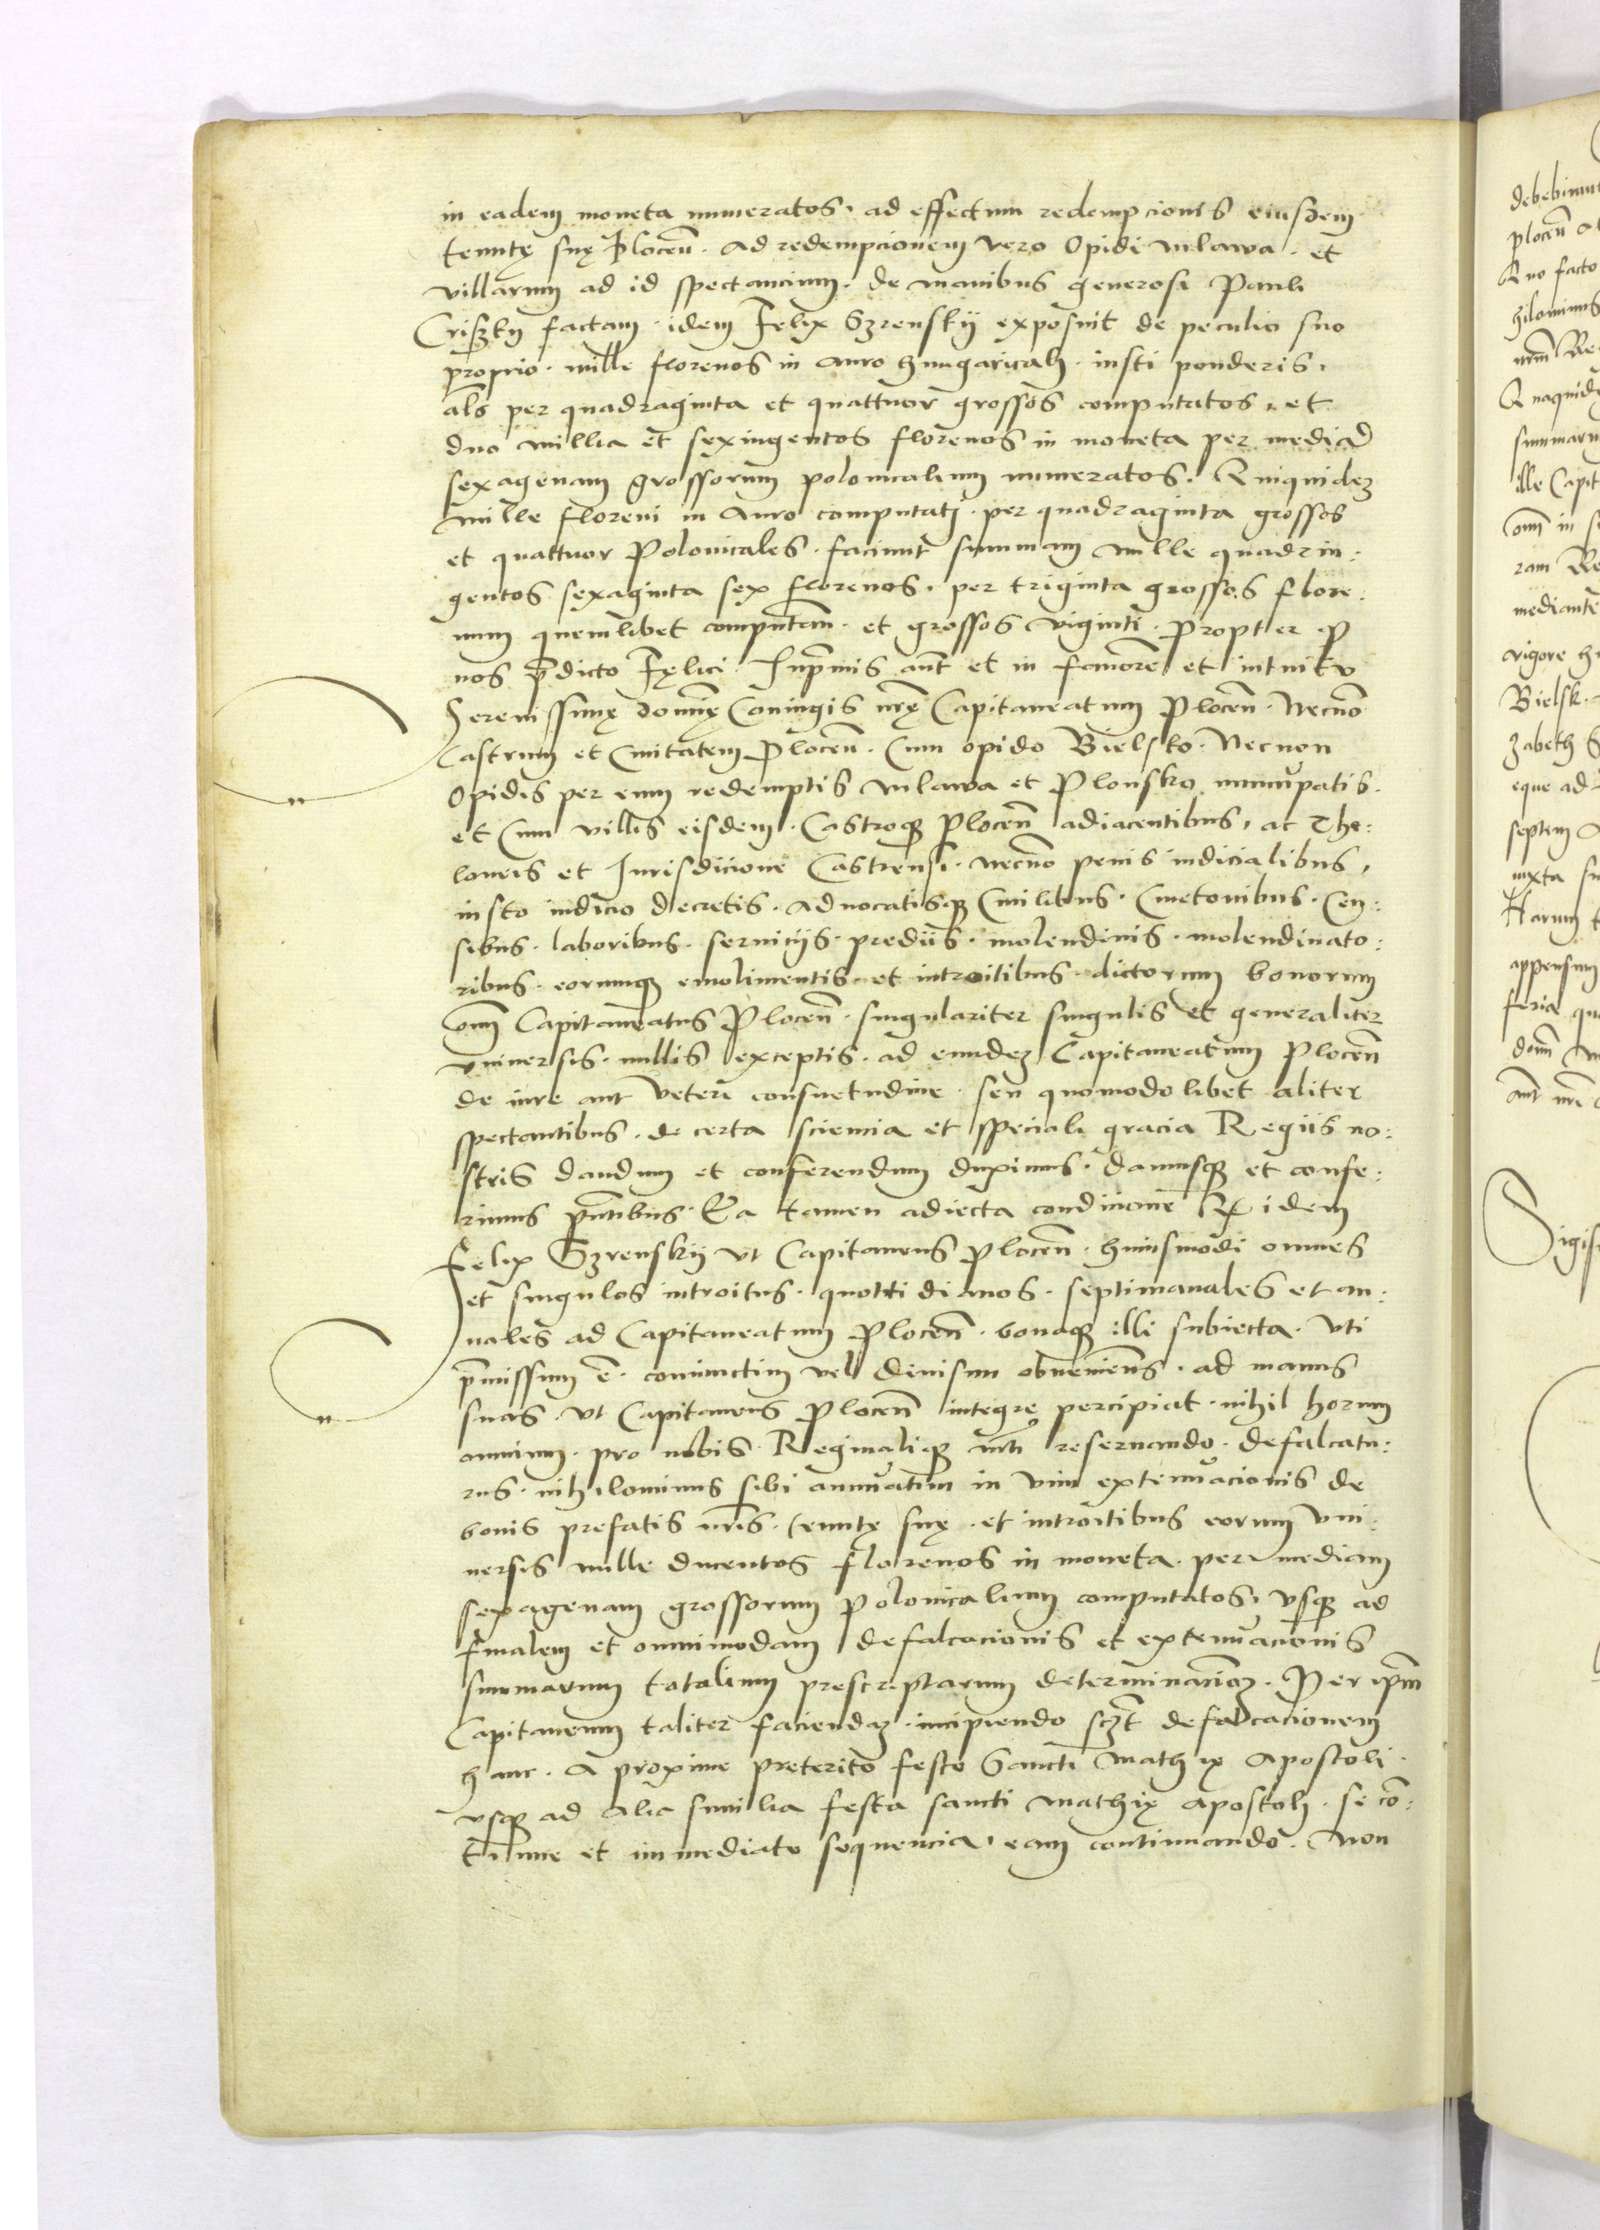 in eadem moneta numeratos, ad effectum redempcionis eiusdem
tenutę suę Plocen̄. Ad redempcionem vero Opidi Mlawa. et
villarum ad id spectancium. de manibus generosi Pauli
factam. idem Felix Szrenskÿ exposuit de peculio suo
proprio. mille florenos in auro hungaricali. iusti ponderis.
als per quadraginta et quattuor grossos computatos. et
duo millia et sexingentos florenos in moneta per mediā
sexagenam grossorum polonicalium numeratos. Quiquidez
mille floreni in Auro computati. per quadraginta grossos
et quattuor Polonicales. faciunt summam mille quadrin:
gentos sexaginta sex florenos. per triginta grossos flore:
num quemlibet computan̄. et grossos viginti. Propter q̄
nos p̄dicto Fęlici. Inprimis aūt et in favorē et intuitu
Serenissimę domīę Coniugis nr̄ę Capitaneatum Plocen̄. Necnō
Castrum et Civitatem Plocen̄. Cum opido Bielsko. Necnon
Opidis per eum redemptis Mlawa et Plonsko nuncupatis.
et Cum villis eisdem. Castroq̄ Plocen̄ adiacentibus, ac The:
loneis et Jurisdicione Castrensi. necnō penis iudicialibus,
iusto iudicio decretis. Advocatisq̄ Civilibus. Cmetonibus. Cen:
sibus. laboribus. serviciis. prediis. molendinis. molendinato:
ribus. eorumq̄ emolimentis et introitibus. dictorum bonorum
om̄ Capitaneatus Plocen̄. singulariter singulis et generaliter
universis. nullis exceptis. ad eundez Capitaneatum Plocen̄
de iure aut veteri consuetudine. seu quomodolibet aliter
spectantibus. de certa sciencia et speciali gracia Regiis no:
stris dandum et conferendum duximus. damusq̄ et confe:
rimus p̄ntibus. Ea tamen adiecta condicione Qꝫ idem
Felix Szrenskÿ ut Capitaneus Plocen̄. huiusmodi omnes
et singulos introitus. quottidianos. septimanales et an:
nales ad Capitaneatum Plocen̄. bonaq̄ illi subiecta. Uti
p̄missum ē. coniunctim vel divisim obvenien̄s. ad manus
suas. ut Capitaneus Plocen̄ integrę percipiat. nihil horum
omnium. pro nobis. Reginaliq̄ mti reservando. defalcatu:
rus. nihilominus sibi annuatim in vim extenuacionis de
bonis prefatis nr̄is. tenutę suę. et introitibus eorum Uni:
versis mille ducentos florenos in moneta. per mediam
sexagenam grossorum Polonicalium computatos, usq̄ ad
finalem et omnimodam defalcacionis et extenuacionis
summarum totalium prescriptarum determinacionē. Per ip̄m
Capitaneum taliter faciendaz. incipiendo sczt defalcacionem
hanc. A proxime preterito festo Sancti Mathię Apostoli.
usq̄ ad alia similia festa sancti Mathię apostoli. se cō:
tinue et immediate sequencia, eam continuando. Non